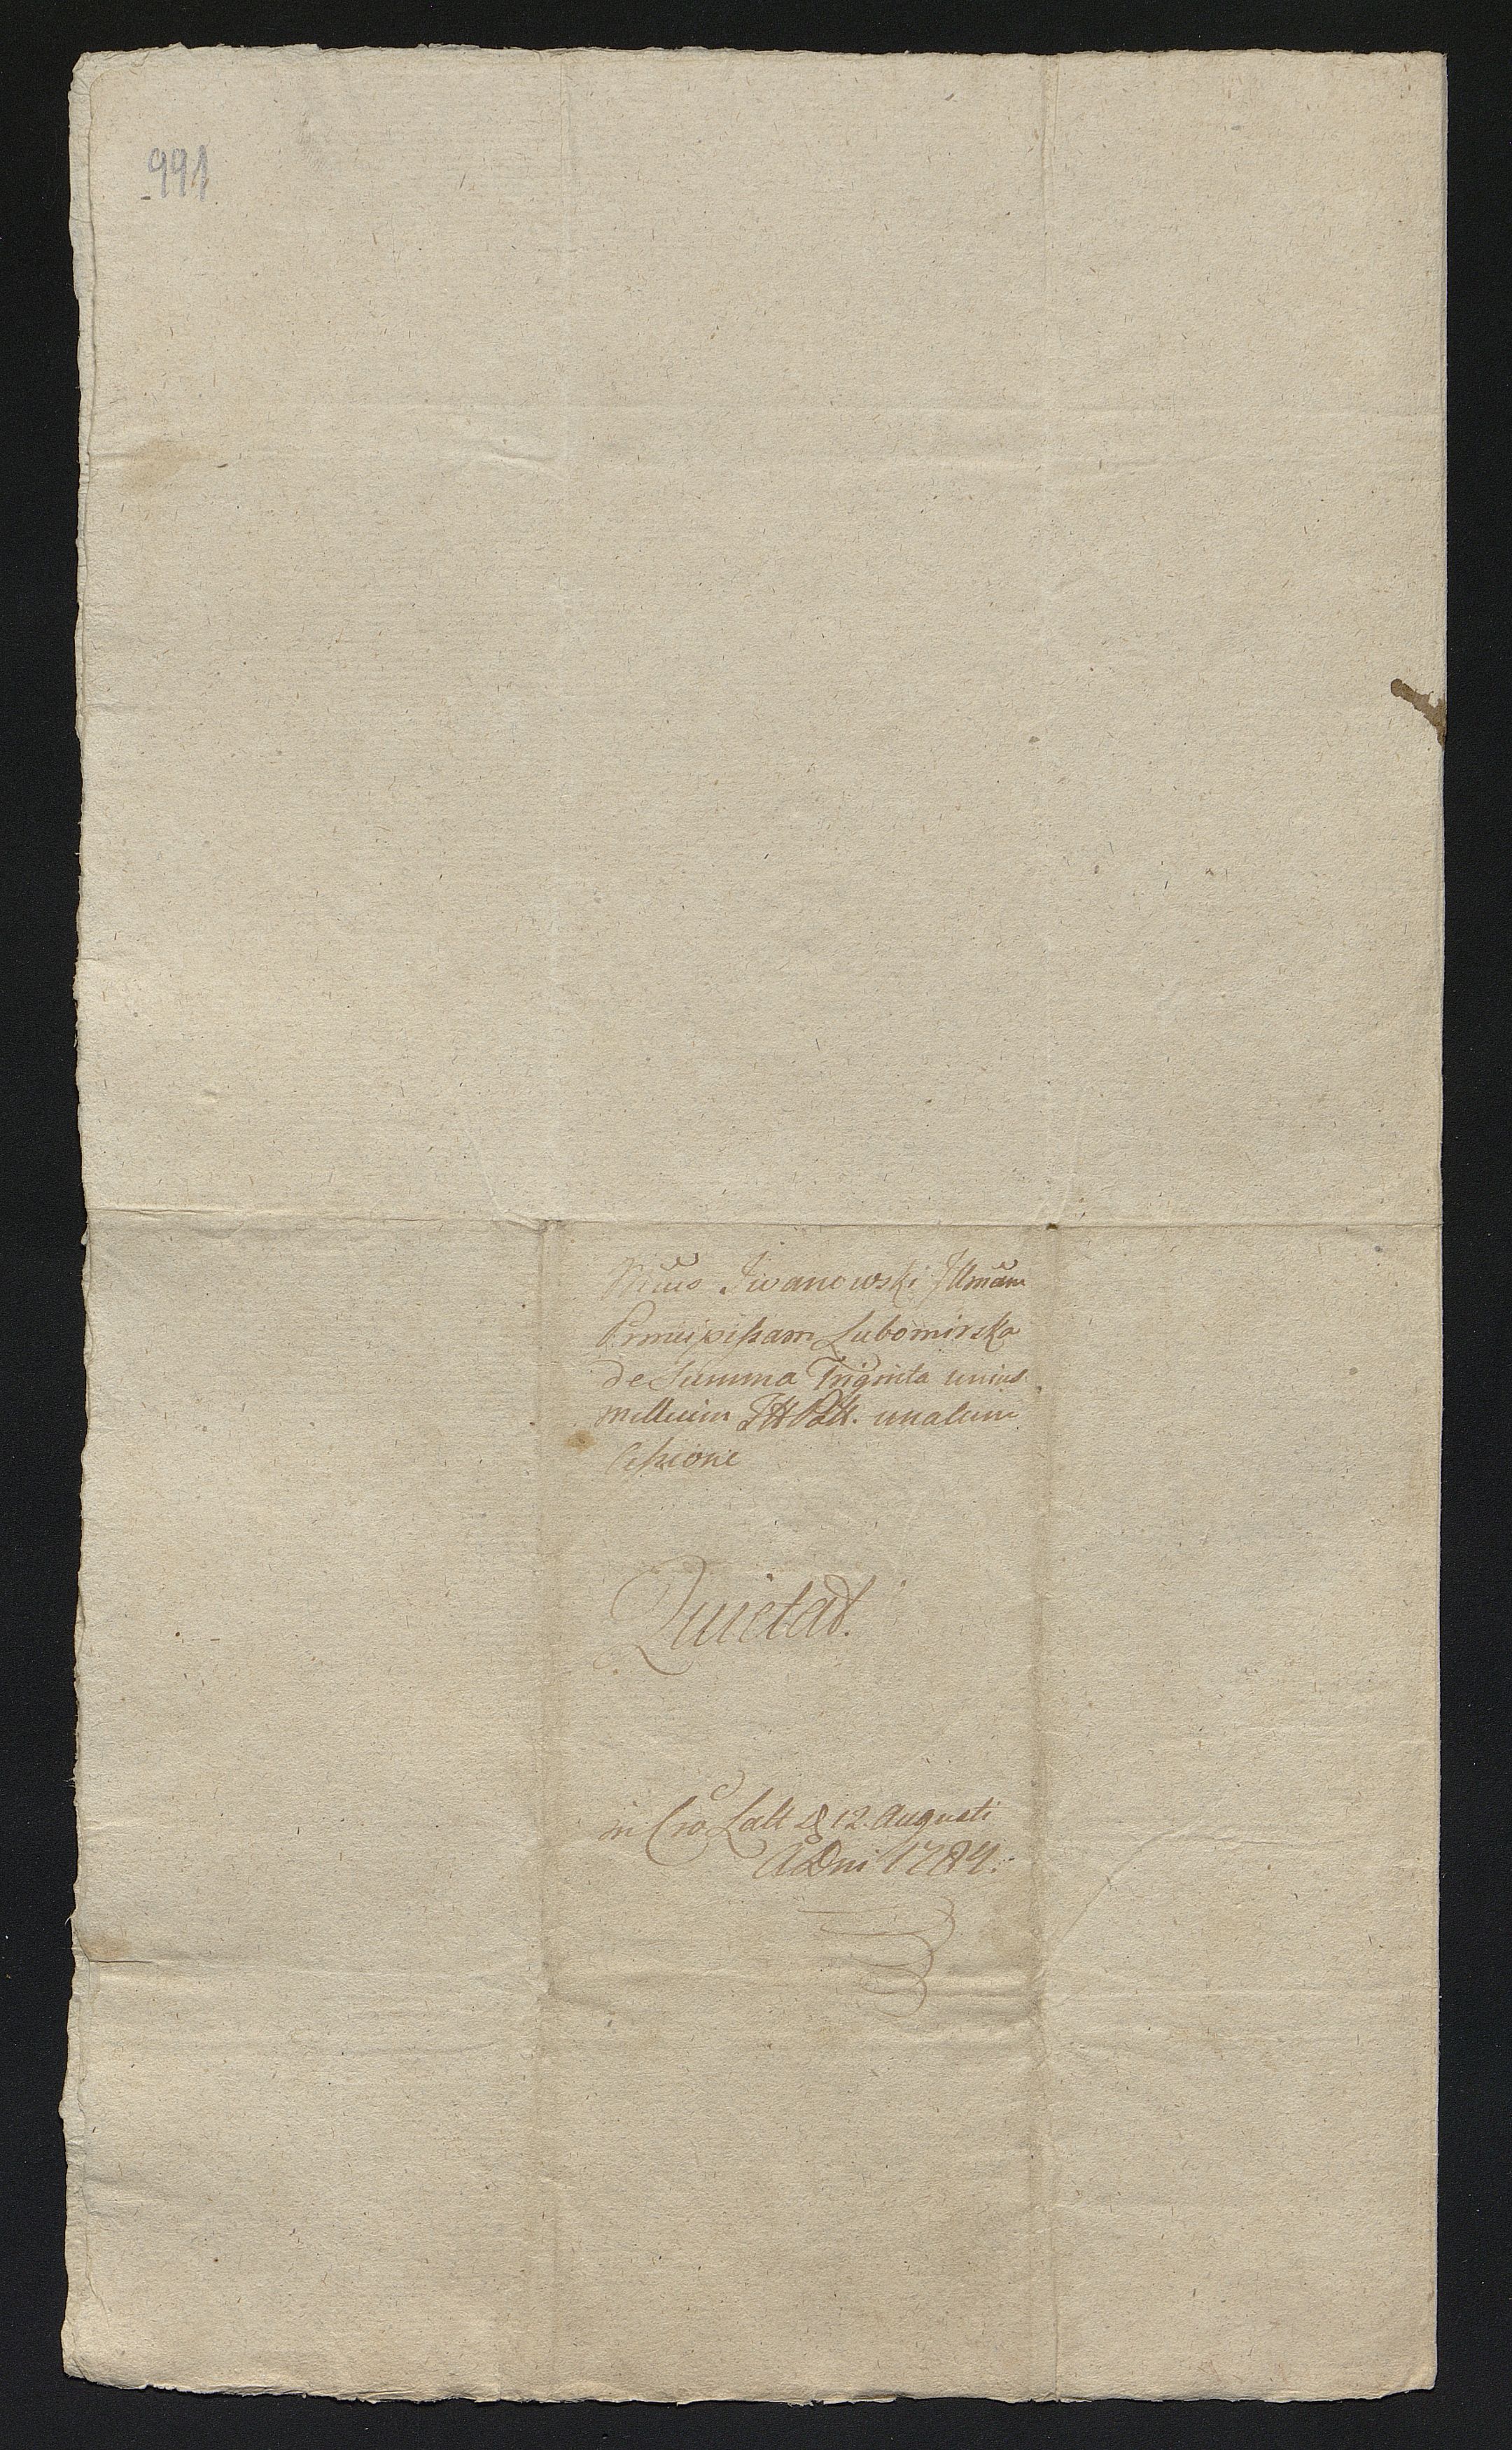 991
Mcus Iwanowski Illmam
Principissam Lubomirska
de Summa Triginta unius
millium FHPolł. una cum
Cessione
Quietat.
in Cro Latt 12. Augusti
A Dni 1784.